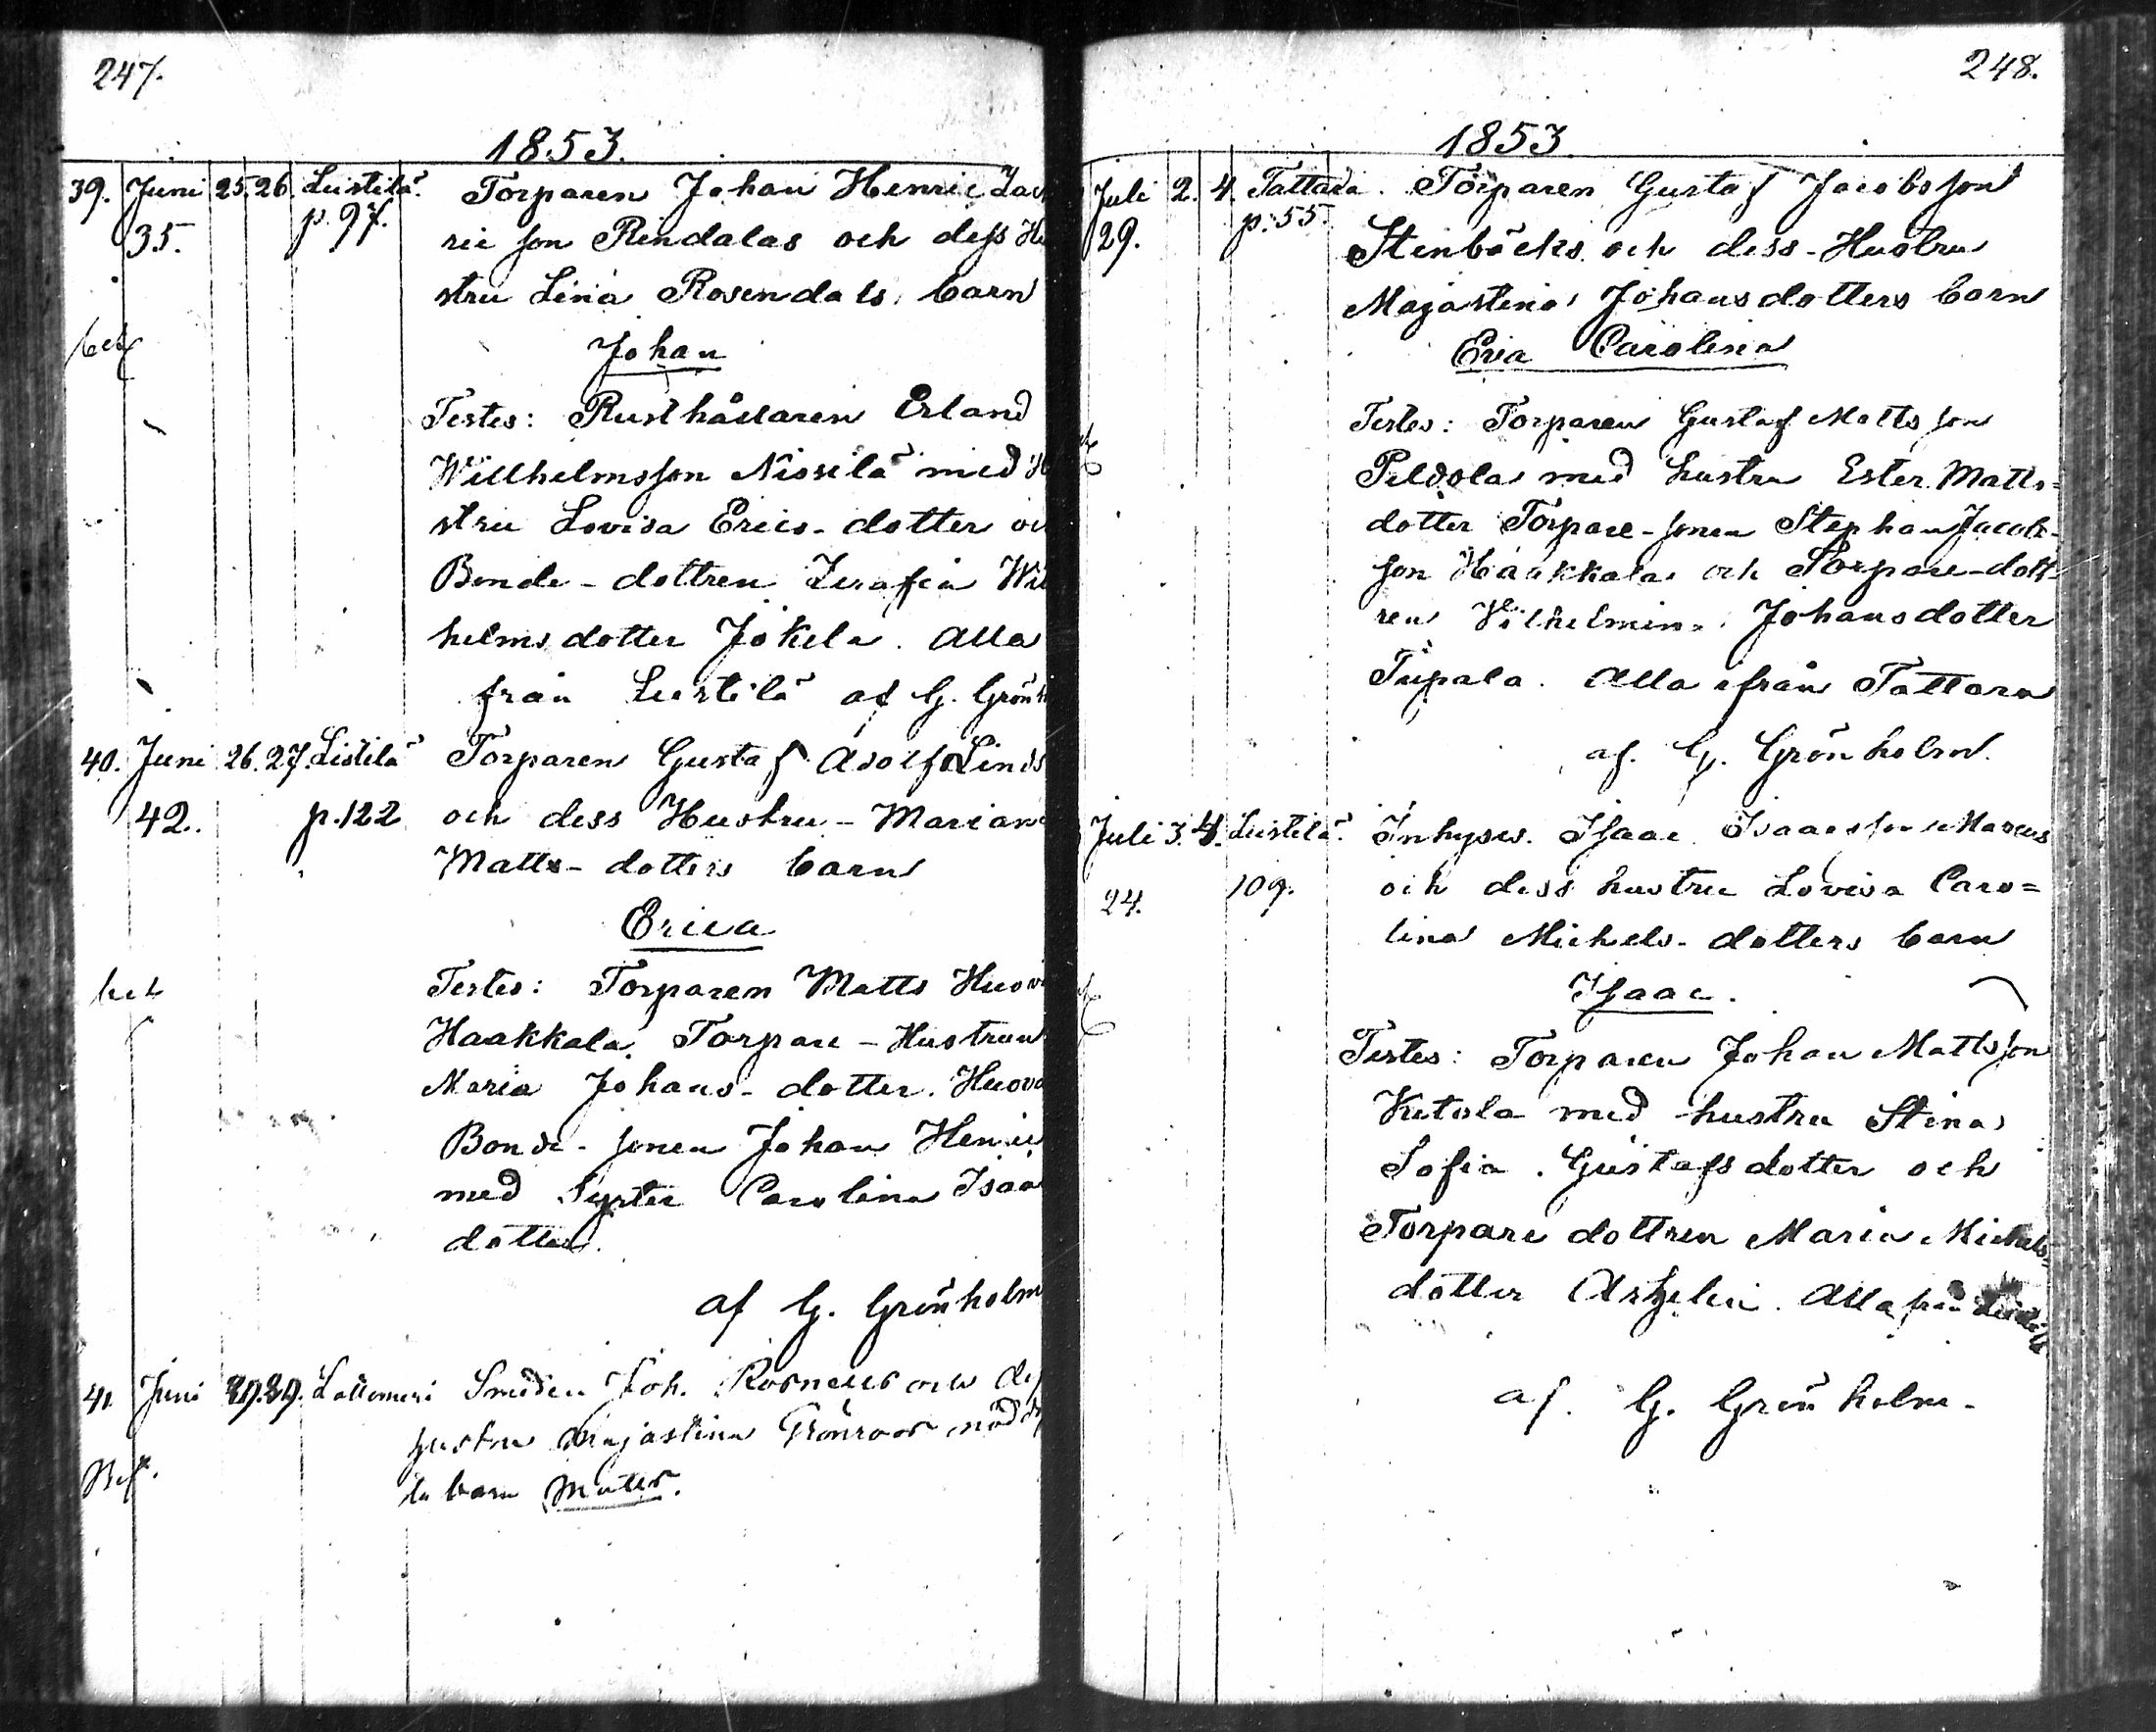 247.
1853.
39. Juni 25. 26. Leistilä. Torparen Johan Henric
35. p. 97. ric son Rendalas och dess
stru Lina Rosendals barn
bet
Johan
Testes: Rusthållaren Erland
Willhelmsson Nissilä med
stru Lovisa Erics-dotter
Bonde-dottren Serafia
helmsdotter Jokela. Alla
från Leistilä af G.
40. Juni 26. 27. Listilä Torparen Gustaf Adolf
42. p. 122 och dess Hustru - Mariana
Matts-dotters barn
Erica
bet
Testes: Torparen Matts
Haakkala. Torpare-Hustrun
Maria Johans-dotter.
Bonde-sonen Johan
med Syster Carolina
dotter.
af G. Grönholm
41. Juni 29. Lattomeri Smeden Joh. Rosnells och
hustru Majastina Grönroos
barn Matts.
248.
1853.
Juli 2. 4. Tattara. Torparen Gustaf Jacobsson
29. p. 55. Stenbäcks och dess Hustru
Majastina Johansdotters barn
Eva Carolina
Testes: Torparen Gustaf Matts son
Peldola med hustru Ester Matts=
dotter Torpare-sonen Stephan Jacob-
son Haakkala och Torpare-dott-
ren Vilhelmina Johansdotter
Tupala. Alla ifrån Tattara
af. G. Grönholm.
Juli 3. 4. Leistilä. Inhyses. Isaac Isaacsson Marcus
24. 109. och dess hustru Lovisa Caro=
lina Michels-dotters barn
Isaac.
Testes: Torparen Johan Mattsson
Ketola med hustru Stina
Sofia. Gustafsdotter och
Torpare dottren Maria Michels-
dotter Alla från Leistilä
af. G. Grönholm-